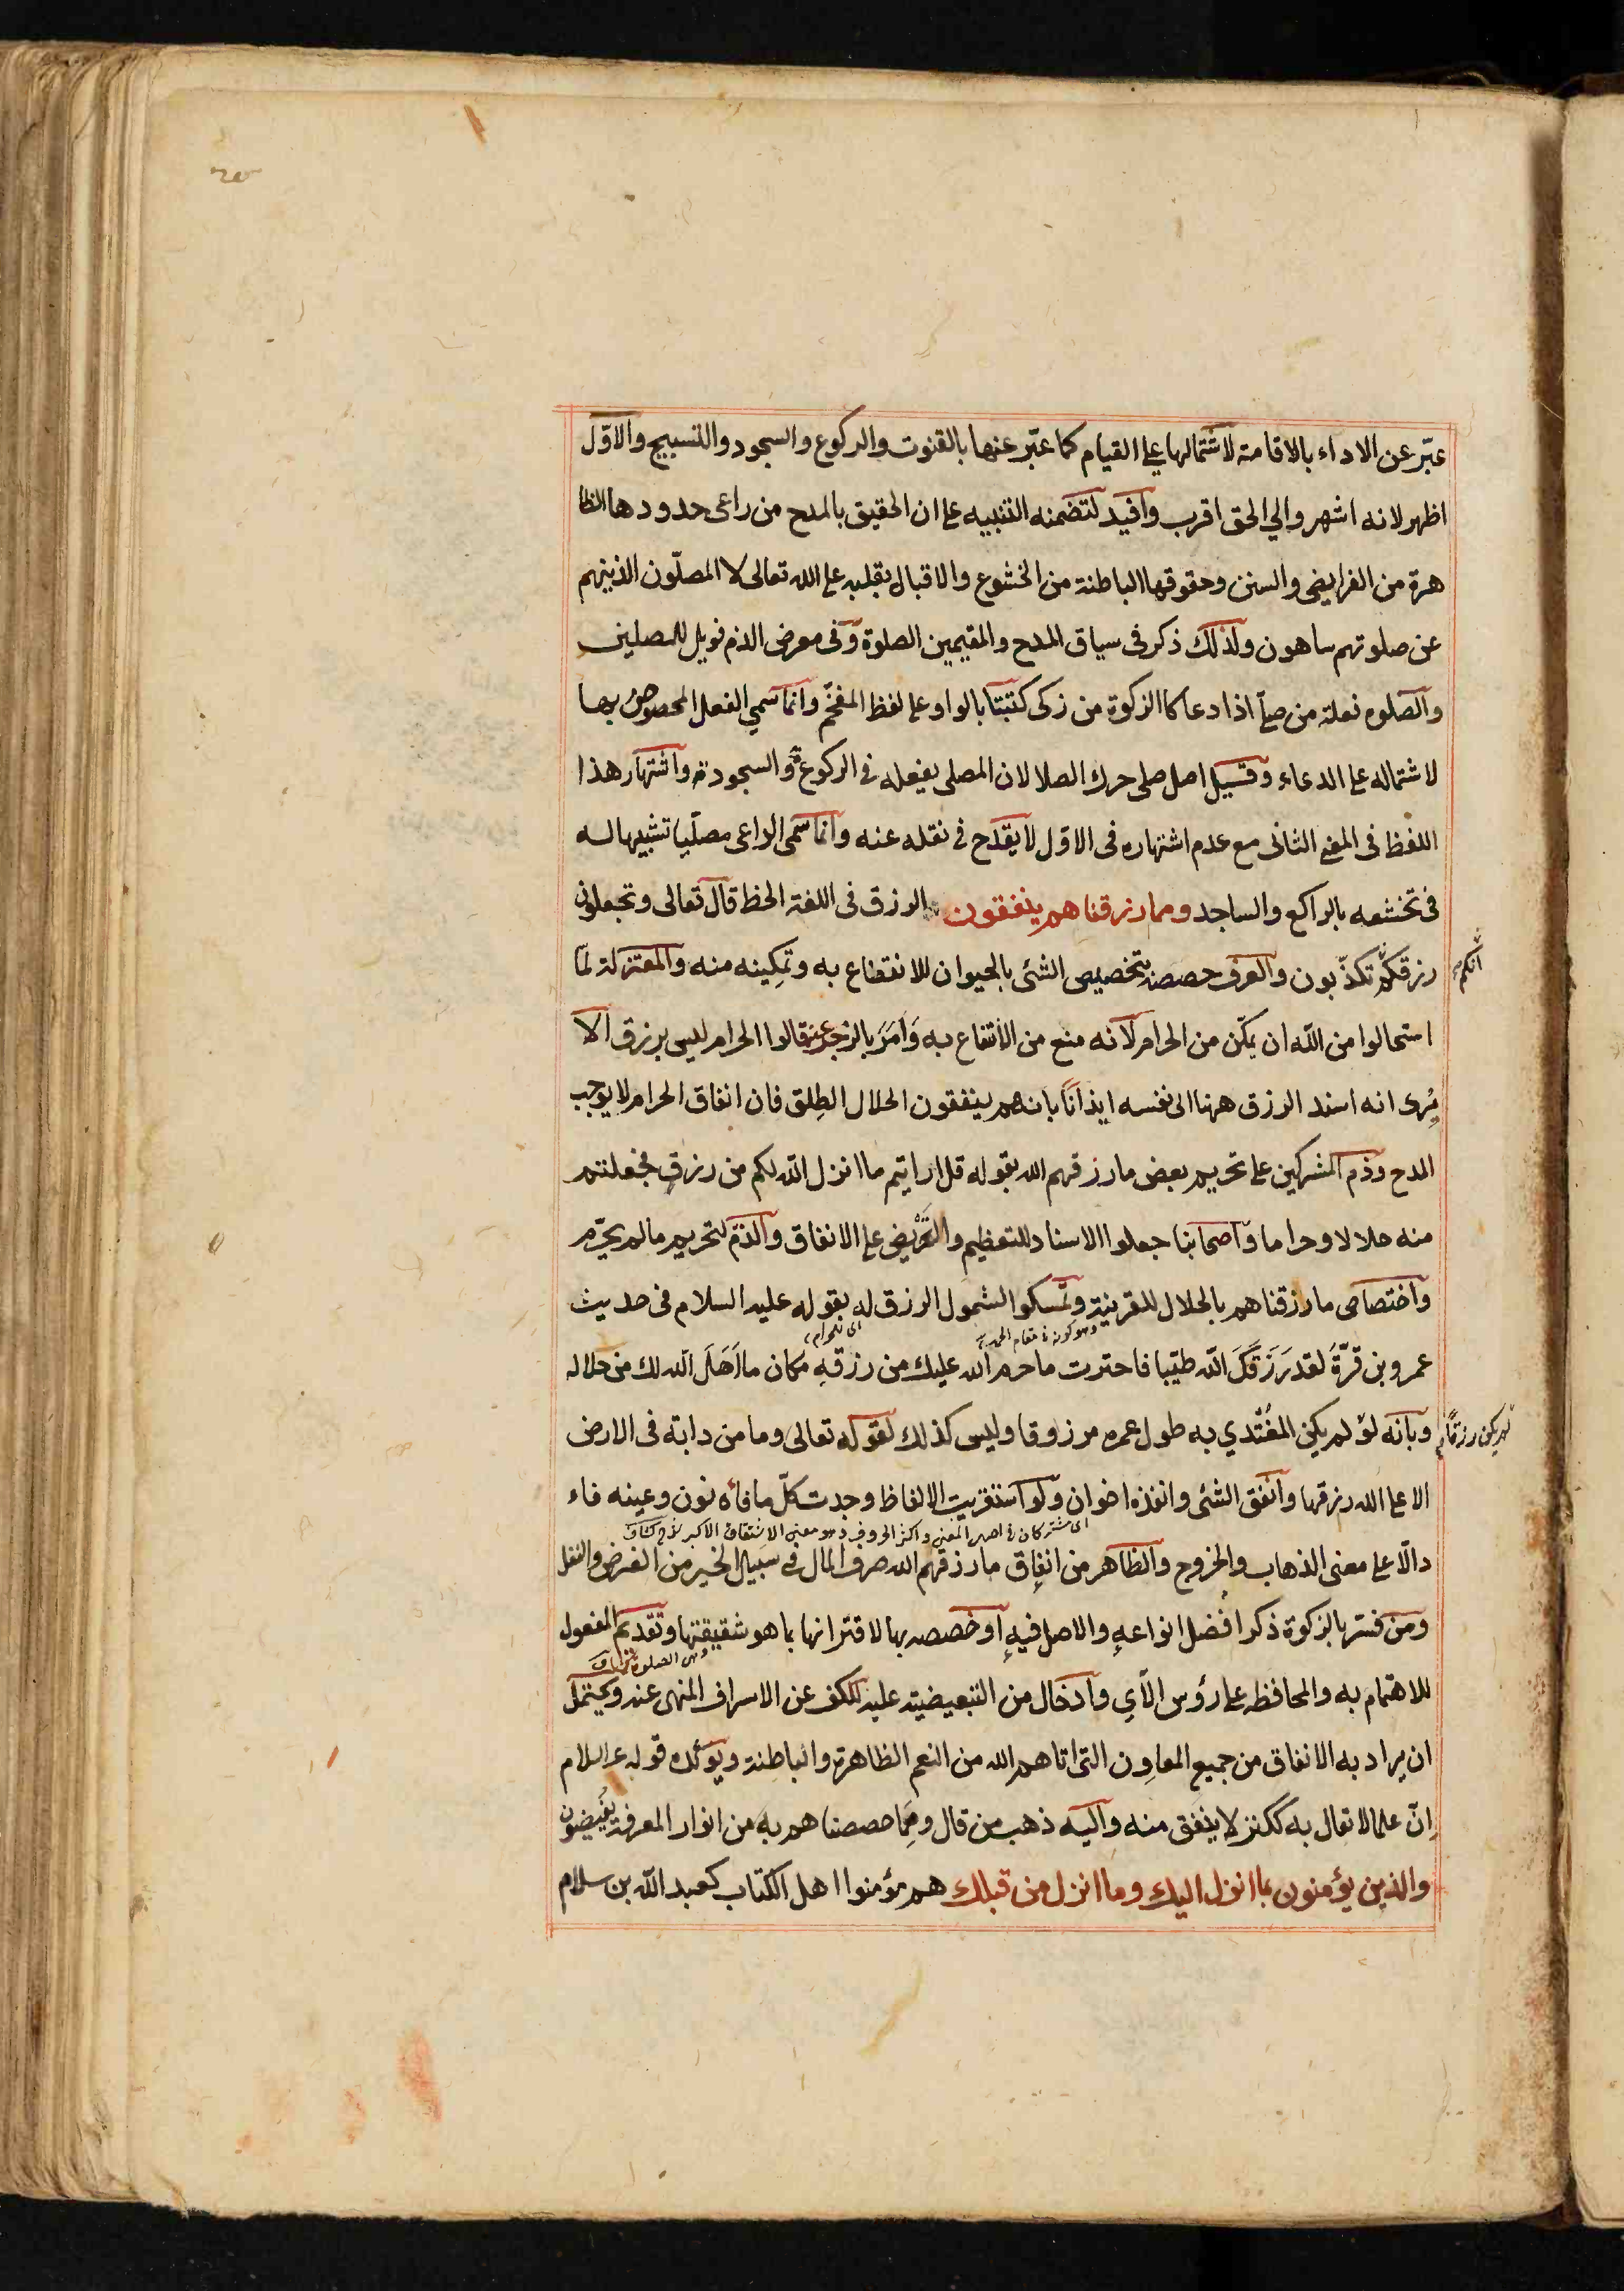 عبّر عن الاداء بالاقامة لاشتمالها على القيام كما عبّر عنها بالقنوت والركوع والسجود والتسبيح والاوّل
اظهر لانه اشهر والي الحق اقرب وافيد لتضمنه التنبيه على ان الحقيق بالمدح من راعى حدودها الظا
هرة من الفرايض والسنن وحقوقها الباطنة من الخشوع والاقبال بقلبه على الله تعالى لا المصلّون الذينهم
عن صلوتهم ساهون ولذلك ذكر فى سياق المدح والمقيمين الصلوة وفى معرض الذم فويل للمصلين
والصلوه فعلة من صلّى اذا دعا كالزكوة من زكى كتبتا بالواو على لفظ المفخّم وانما سمي الفعل المحصوص بها
لاشتماله على الدعاء وقيل اصل صلى حرك الصلا لان المصلى يفعله فى الركوع والسجود واشتهار هذا
اللفظ فى المعنى الثانى مع عدم اشتهاره فى الاوّل لا يقدح فى نقله عنه وانما سمى الداعى مصلّيا تشبيها له
فى تخشعه بالراكع والساجد ومما رزقناهم ينفقون الرزق فى اللغة الحظ قال تعالى وتجعلون
انكم
رزقكم تكذّبون والعرف خصصه بتخصيص الشئ بالحيوان للانتفاع به وتمكينه منه والمعتزلة لمّا
استحالوا من الله ان يمكّن من الحرام لانه منع من الانتفاع به وَاَمَرَ بالزجر عنه قالوا الحرام ليس برزق الا
يُرى انه اسند الرزق ههنا الى نفسه ايذانًا بانهم ينفقون الحلال الطِلق فان انفاق الحرام لا يوجب
المدح وذم المشركين على تحريم بعض ما رزقهم الله بقوله قل ارايتم ما انزل الله لكم من رزق فجعلتم
منه حلالا وحراما واصحابنا جعلوا الاسناد للتعظيم والتحريض على الانفاق والذمّ لتحريم ما لم يحرّم
واختصاص ما رزقناهم بالحلال للقرينة وتمسكوا الشمول الرزق له بقوله عليه السلام فى حديث
وهو كونه فى مقام المدح
اى للحرام
عمرو بن قرّة لقد رَزَقَكَ الله طيّبا فاخترت ما حرم الله عليك من رزقهِ مكان ما اَحَلَّ الله لك من حلاله
لم يكن رزقًا
وبانه لو لم يكن المغُتَدي به طول عمره مرزوقا وليس كذلك لقوله تعالى وما من دابة فى الارض
الا على الله رزقها وانفق الشئ وانفذه اخوان ولو استقريت الالفاظ وجدت كلّ ما فاؤه نون وعينه فاء
اى مشتركان فى اصل المعنى واكثر الحروف وهو معنى الاشتقاق الاكبر
دالّا على معنى الذهاب والخروج والظاهر من انفاق ما رزقهم الله صرف المال فى سبيل الخير من الفرض والنفل
ومن فسّر بالزكوة ذكر افضل انواعهِ والاصل فيهِ او خصصه بها لاقترانها بما هو شقيقتها وتقديم المفعول
وهى الصلوة
للاهتمام به والمحافظه على رؤس الآي وادخال من التبعيضيّة عليه للكف عن الاسراف المنهى عنه ويحتمل
ان يراد به الانفاق من جميع المعاوِن التى اتاهم الله من النعم الظاهرة والباطنة ويؤيّده قوله ع السلام
اِنّ علما لا يقال به ككنز لا ينفق منه واليه ذهب من قال ومِمّا خصصناهم به من انوار المعرفة يفُيضون
والذين يؤمنون بما انزل اليك وما انزل من قبلك هم مؤمنوا اهل الكتاب كعبد الله بن سلام